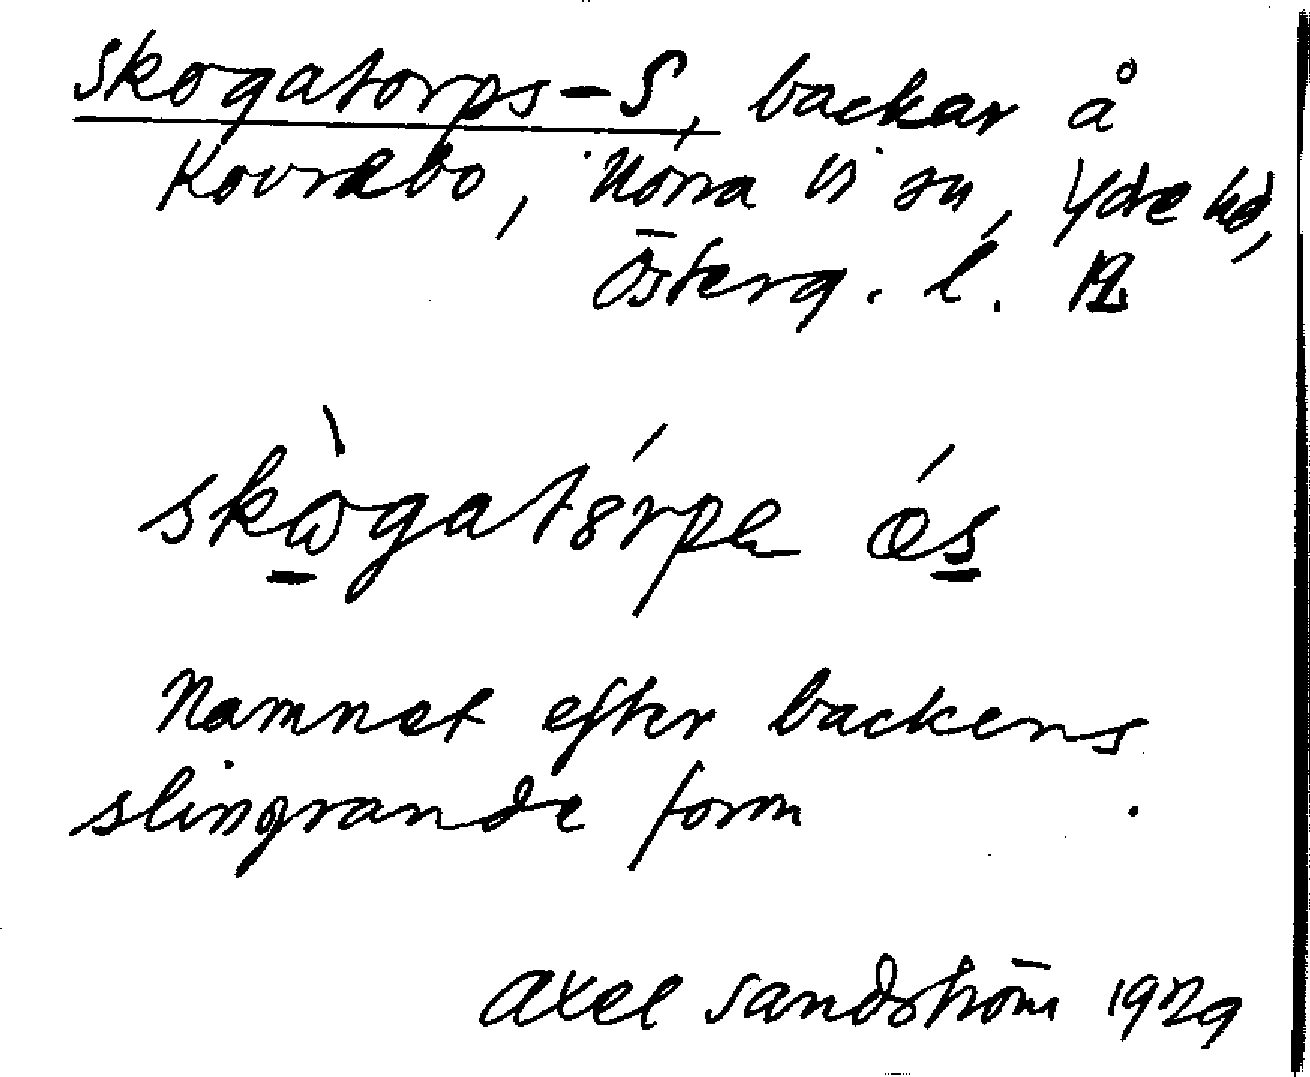 Skogatorps-S, backar å
Kovrabo, Norra Vi sn, Ydre hd,
Österg. l.
skògatórpa ás
Namnet efter backens
slingrande form
Axel Sandström 1929